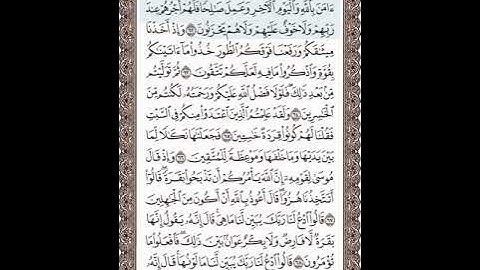 ءَامَنَ بِٱللَّهِ وَٱلْيَوْمِ ٱلْءَاخِرِ وَعَمِلَ صَٰلِحًا فَلَهُمْ أَجْرُهُمْ عِندَ
رَبِّهِمْ وَلَا خَوْفٌ عَلَيْهِمْ وَلَا هُمْ يَحْزَنُونَ ٦٢ وَإِذْ أَخَذْنَا
مِيثَٰقَكُمْ وَرَفَعْنَا فَوْقَكُمُ ٱلطُّورَ خُذُوا۟ مَآ ءَاتَيْنَٰكُم
بِقُوَّةٍ وَٱذْكُرُوا۟ مَا فِيهِ لَعَلَّكُمْ تَتَّقُونَ ٦٣ ثُمَّ تَوَلَّيْتُم
مِّنۢ بَعْدِ ذَٰلِكَ فَلَوْلَا فَضْلُ ٱللَّهِ عَلَيْكُمْ وَرَحْمَتُهُۥ لَكُنتُم مِّنَ
ٱلْخَٰسِرِينَ ٦٤ وَلَقَدْ عَلِمْتُمُ ٱلَّذِينَ ٱعْتَدَوْا۟ مِنكُمْ فِى ٱلسَّبْتِ
فَقُلْنَا لَهُمْ كُونُوا۟ قِرَدَةً خَٰسِـِٔينَ ٦٥ فَجَعَلْنَٰهَا نَكَٰلًا لِّمَا
بَيْنَ يَدَيْهَا وَمَا خَلْفَهَا وَمَوْعِظَةً لِّلْمُتَّقِينَ ٦٦ وَإِذْ قَالَ
مُوسَىٰ لِقَوْمِهِۦٓ إِنَّ ٱللَّهَ يَأْمُرُكُمْ أَن تَذْبَحُوا۟ بَقَرَةً ۖ قَالُوٓا۟
أَتَتَّخِذُنَا هُزُوًا ۖ قَالَ أَعُوذُ بِٱللَّهِ أَنْ أَكُونَ مِنَ ٱلْجَٰهِلِينَ
٦٧ قَالُوا۟ ٱدْعُ لَنَا رَبَّكَ يُبَيِّن لَّنَا مَا هِىَ ۚ قَالَ إِنَّهُۥ يَقُولُ إِنَّهَا
بَقَرَةٌ لَّا فَارِضٌ وَلَا بِكْرٌ عَوَانٌۢ بَيْنَ ذَٰلِكَ ۖ فَٱفْعَلُوا۟ مَا
تُؤْمَرُونَ ٦٨ قَالُوا۟ ٱدْعُ لَنَا رَبَّكَ يُبَيِّن لَّنَا مَا لَوْنُهَا ۚ قَالَ إِنَّهُۥ